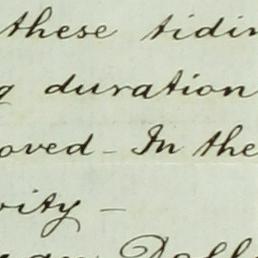 these tidin
g duration
oved - In the
vity -